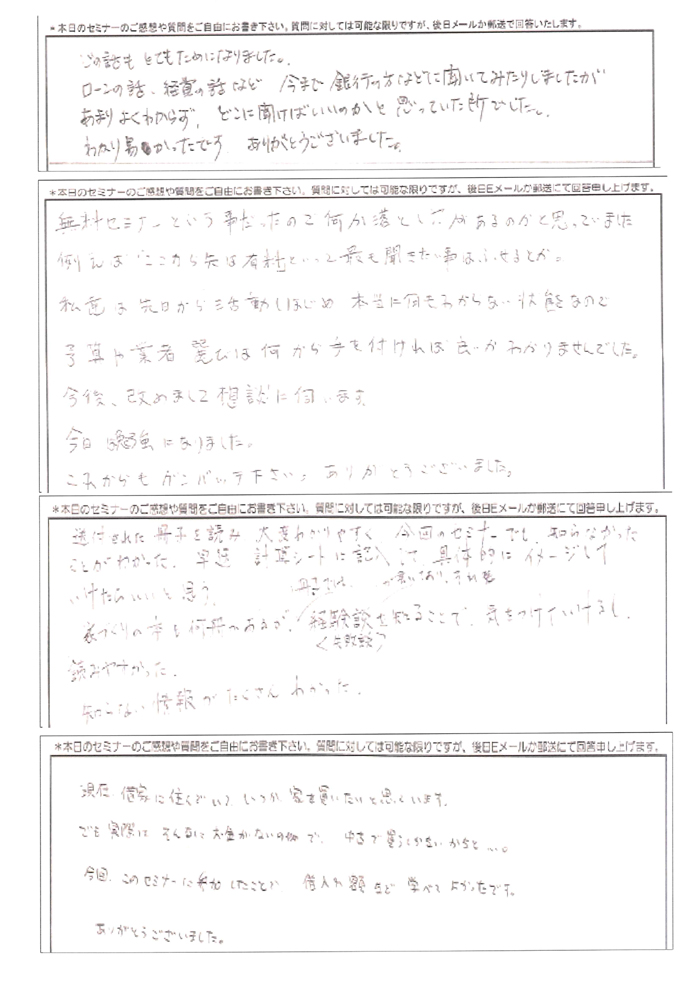 *本日のセミナーのご感想や質問をご自由にお書き下さい。質問に対しては可能な限りですが、後日メールか郵送で回答いたします。
どの話もとてもためになりました。
ローンの話、経費の話など 今まで銀行の方などに聞いてみたりしましたが
あまりよくわからず、どこに聞けばいいのかと思っていた所でした。
わかり易かったです ありがとうございました。
*本日のセミナーのご感想や質問をご自由にお書き下さい。質問に対しては可能な限りですが、後日Eメールか郵送にて回答申し上げます。
無料セミナーという事だったので何か落とし穴があるのかと思っていました
例えば ここから先は有料といって最も聞きたい事はふせるとか。
私達は先日から活動しはじめ 本当に何もわからない状態なので
予算や業者選びは何から手を付ければ良いかわかりませんでした。
今後、改めまして想談に伺います
今日は勉強になりました。
これからもガンバッテ下さい。ありがとうございました。
*本日のセミナーのご感想や質問をご自由にお書き下さい。質問に対しては可能な限りですが、後日Eメールか郵送にて回答申し上げます。
送付された冊子を読み 大変わかりやすく 今回のセミナーでも、知らなかった
ことがわかった。早速 計算シートに記入して、具体的にイメージして
いけたらいいと思う。
家づくりの本も何冊かあるが、経験談を知ることで、気をつけていけるし、
<失敗談>
読みやすかった。
知らない情報がたくさんわかった。
*本日のセミナーのご感想や質問をご自由にお書き下さい。質問に対しては可能な限りですが、後日Eメールか郵送にて回答申し上げます。
現在 借家に住んでいて いつか 家を買いたいと思っています。
でも実際は そんなに お金がないので、中古で買うしかないかなと…。
今回、このセミナーに参加したことで、借入れ額など 学べてよかったです。
ありがとうございました。